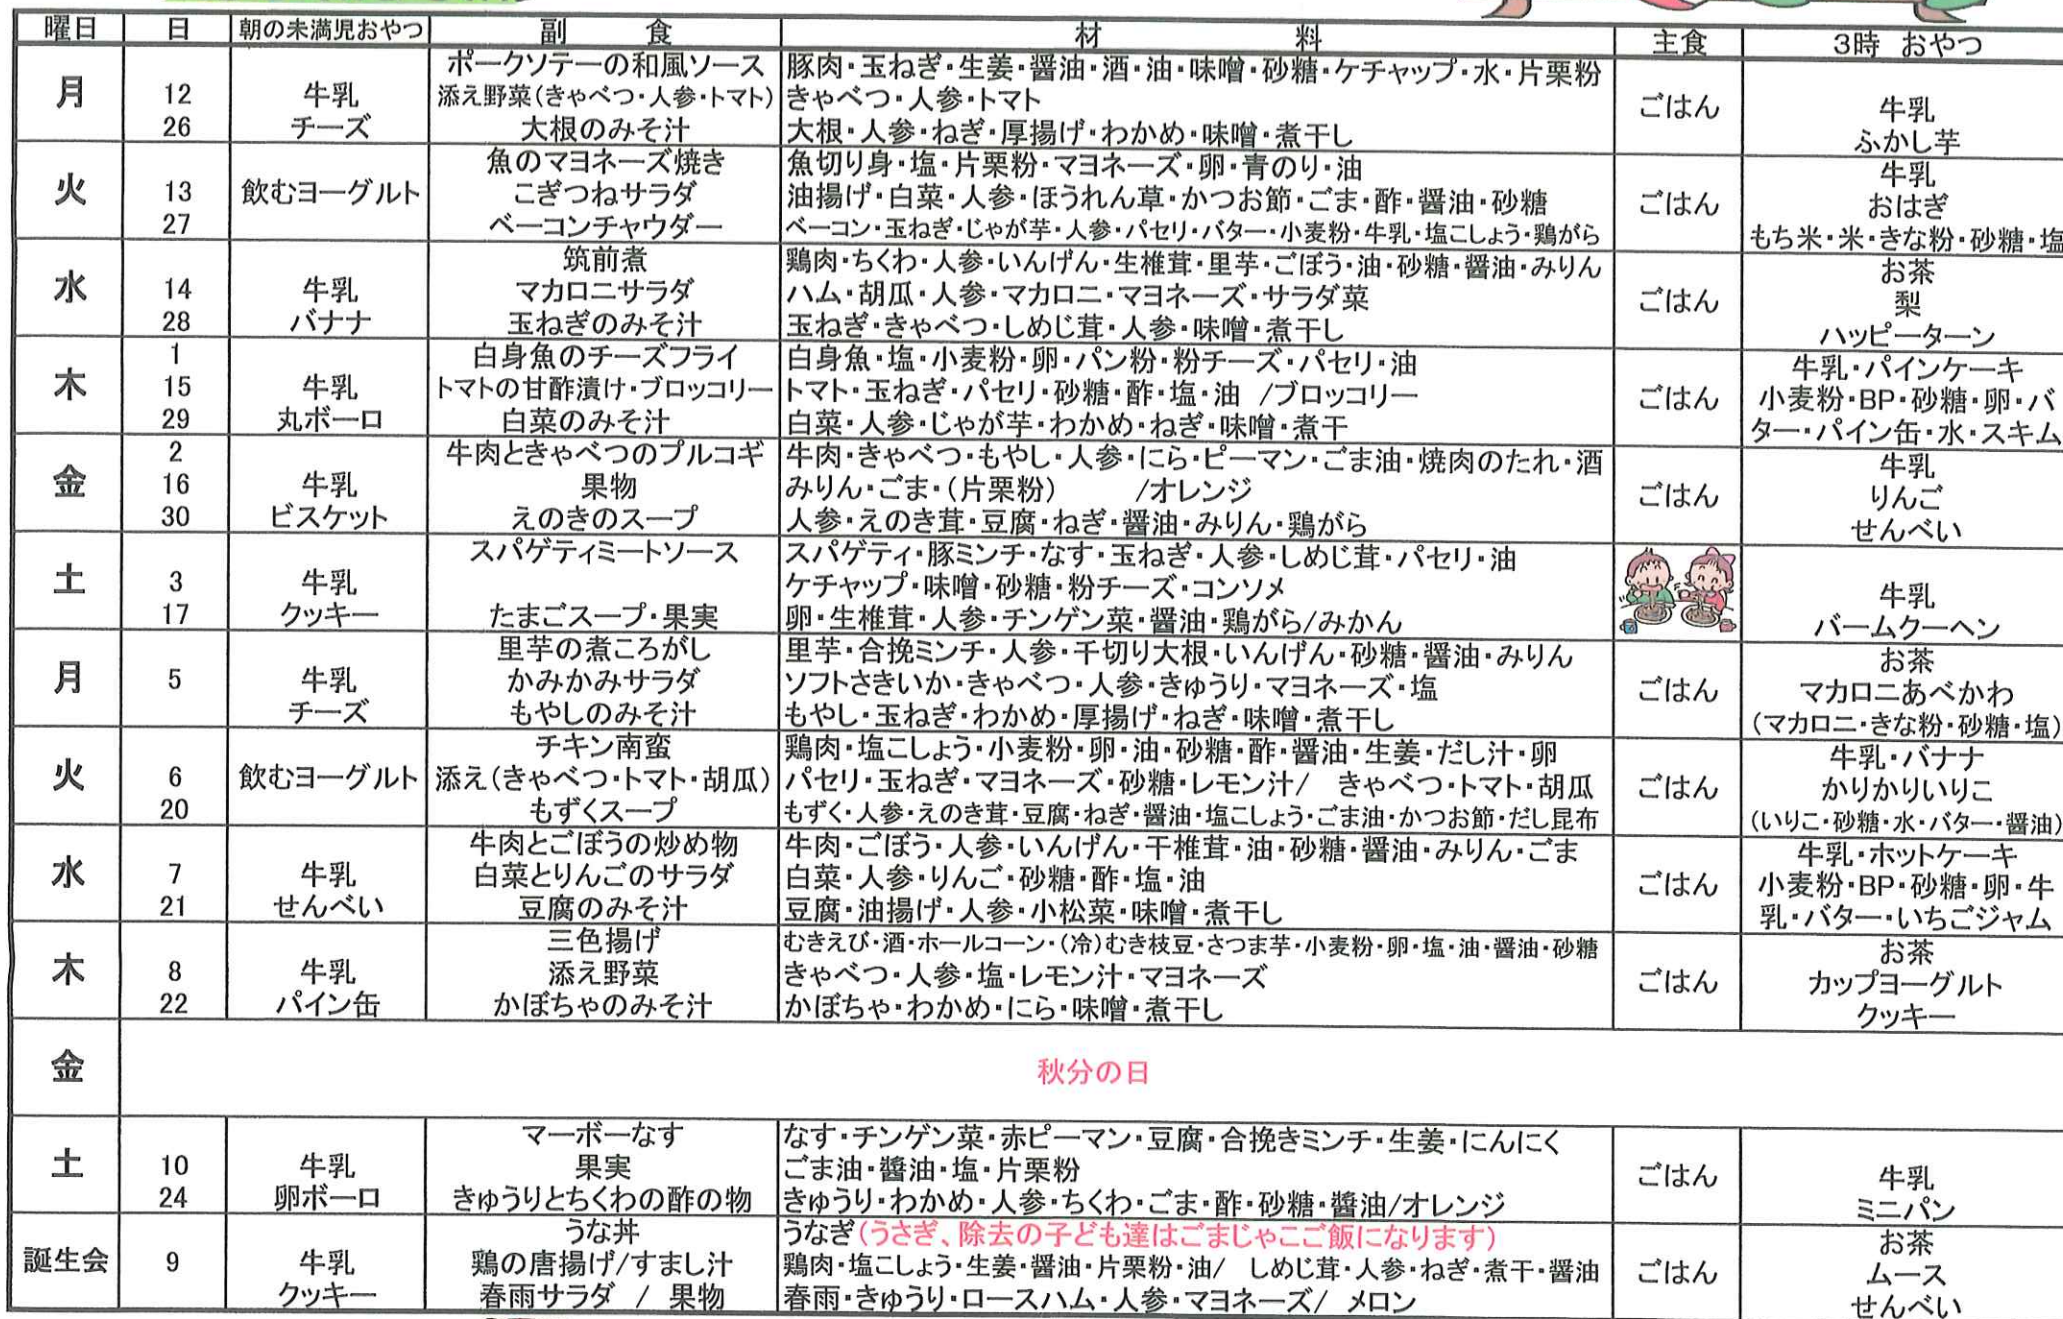 曜日 日 朝の未満児おやつ 副 食 材 料 主食 3時 おやつ
月
12
26
牛乳
チーズ
ポークソテーの和風ソース
添え野菜(きゃべつ・人参・トマト)
大根のみそ汁
豚肉・玉ねぎ・生姜・醤油・酒・油・味噌・砂糖・ケチャップ・水・片栗粉
きゃべつ・人参・トマト
大根・人参・ねぎ・厚揚げ・わかめ・味噌・煮干し
ごはん
牛乳
ふかし芋
火
13
27
飲むヨーグルト
魚のマヨネーズ焼き
こぎつねサラダ
ベーコンチャウダー
魚切り身・塩・片栗粉・マヨネーズ・卵・青のり・油
油揚げ・白菜・人参・ほうれん草・かつお節・ごま・酢・醤油・砂糖
ベーコン・玉ねぎ・じゃが芋・人参・パセリ・バター・小麦粉・牛乳・塩こしょう・鶏がら
ごはん
牛乳
おはぎ
もち米・米・きな粉・砂糖・塩
水
14
28
牛乳
バナナ
筑前煮
マカロニサラダ
玉ねぎのみそ汁
鶏肉・ちくわ・人参・いんげん・生椎茸・里芋・ごぼう・油・砂糖・醤油・みりん
ハム・胡瓜・人参・マカロニ・マヨネーズ・サラダ菜
玉ねぎ・きゃべつ・しめじ茸・人参・味噌・煮干し
ごはん
お茶
梨
ハッピーターン
木
1
15
29
牛乳
丸ボーロ
白身魚のチーズフライ
トマトの甘酢漬け・ブロッコリー
白菜のみそ汁
白身魚・塩・小麦粉・卵・パン粉・粉チーズ・パセリ・油
トマト・玉ねぎ・パセリ・砂糖・酢・塩・油 /ブロッコリー
白菜・人参・じゃが芋・わかめ・ねぎ・味噌・煮干
ごはん
牛乳・パインケーキ
小麦粉・BP・砂糖・卵・バ
ター・パイン缶・水・スキム
金
2
16
30
牛乳
ビスケット
牛肉ときゃべつのプルコギ
果物
えのきのスープ
牛肉・きゃべつ・もやし・人参・にら・ピーマン・ごま油・焼肉のたれ・酒
みりん・ごま・(片栗粉) /オレンジ
人参・えのき茸・豆腐・ねぎ・醤油・みりん・鶏がら
ごはん
牛乳
りんご
せんべい
土
3
17
牛乳
クッキー
スパゲティミートソース
たまごスープ・果実
スパゲティ・豚ミンチ・なす・玉ねぎ・人参・しめじ茸・パセリ・油
ケチャップ・味噌・砂糖・粉チーズ・コンソメ
卵・生椎茸・人参・チンゲン菜・醤油・鶏がら/みかん
牛乳
バームクーヘン
月
5
牛乳
チーズ
里芋の煮ころがし
かみかみサラダ
もやしのみそ汁
里芋・合挽ミンチ・人参・千切り大根・いんげん・砂糖・醤油・みりん
ソフトさきいか・きゃべつ・人参・きゅうり・マヨネーズ・塩
もやし・玉ねぎ・わかめ・厚揚げ・ねぎ・味噌・煮干し
ごはん
お茶
マカロニあべかわ
(マカロニ・きな粉・砂糖・塩)
火
6
20
飲むヨーグルト
チキン南蛮
添え(きゃべつ・トマト・胡瓜)
もずくスープ
鶏肉・塩こしょう・小麦粉・卵・油・砂糖・酢・醤油・生姜・だし汁・卵
パセリ・玉ねぎ・マヨネーズ・砂糖・レモン汁/ きゃべつ・トマト・胡瓜
もずく・人参・えのき茸・豆腐・ねぎ・醤油・塩こしょう・ごま油・かつお節・だし昆布
ごはん
牛乳・バナナ
かりかりいりこ
(いりこ・砂糖・水・バター・醤油)
水
7
21
牛乳
せんべい
牛肉とごぼうの炒め物
白菜とりんごのサラダ
豆腐のみそ汁
牛肉・ごぼう・人参・いんげん・干椎茸・油・砂糖・醤油・みりん・ごま
白菜・人参・りんご・砂糖・酢・塩・油
豆腐・油揚げ・人参・小松菜・味噌・煮干し
ごはん
牛乳・ホットケーキ
小麦粉・BP・砂糖・卵・牛
乳・バター・いちごジャム
木
8
22
牛乳
パイン缶
三色揚げ
添え野菜
かぼちゃのみそ汁
むきえび・酒・ホールコーン・(冷)むき枝豆・さつま芋・小麦粉・卵・塩・油・醤油・砂糖
きゃべつ・人参・塩・レモン汁・マヨネーズ
かぼちゃ・わかめ・にら・味噌・煮干し
ごはん
お茶
カップヨーグルト
クッキー
金
秋分の日
土
10
24
牛乳
卵ボーロ
マーボーなす
果実
きゅうりとちくわの酢の物
なす・チンゲン菜・赤ピーマン・豆腐・合挽きミンチ・生姜・にんにく
ごま油・醤油・塩・片栗粉
きゅうり・わかめ・人参・ちくわ・ごま・酢・砂糖・醤油/オレンジ
ごはん
牛乳
ミニパン
誕生会
9
牛乳
クッキー
うな丼
鶏の唐揚げ/すまし汁
春雨サラダ / 果物
うなぎ(うさぎ、除去の子ども達はごまじゃこご飯になります)
鶏肉・塩こしょう・生姜・醤油・片栗粉・油/ しめじ茸・人参・ねぎ・煮干・醤油
春雨・きゅうり・ロースハム・人参・マヨネーズ/ メロン
ごはん
お茶
ムース
せんべい